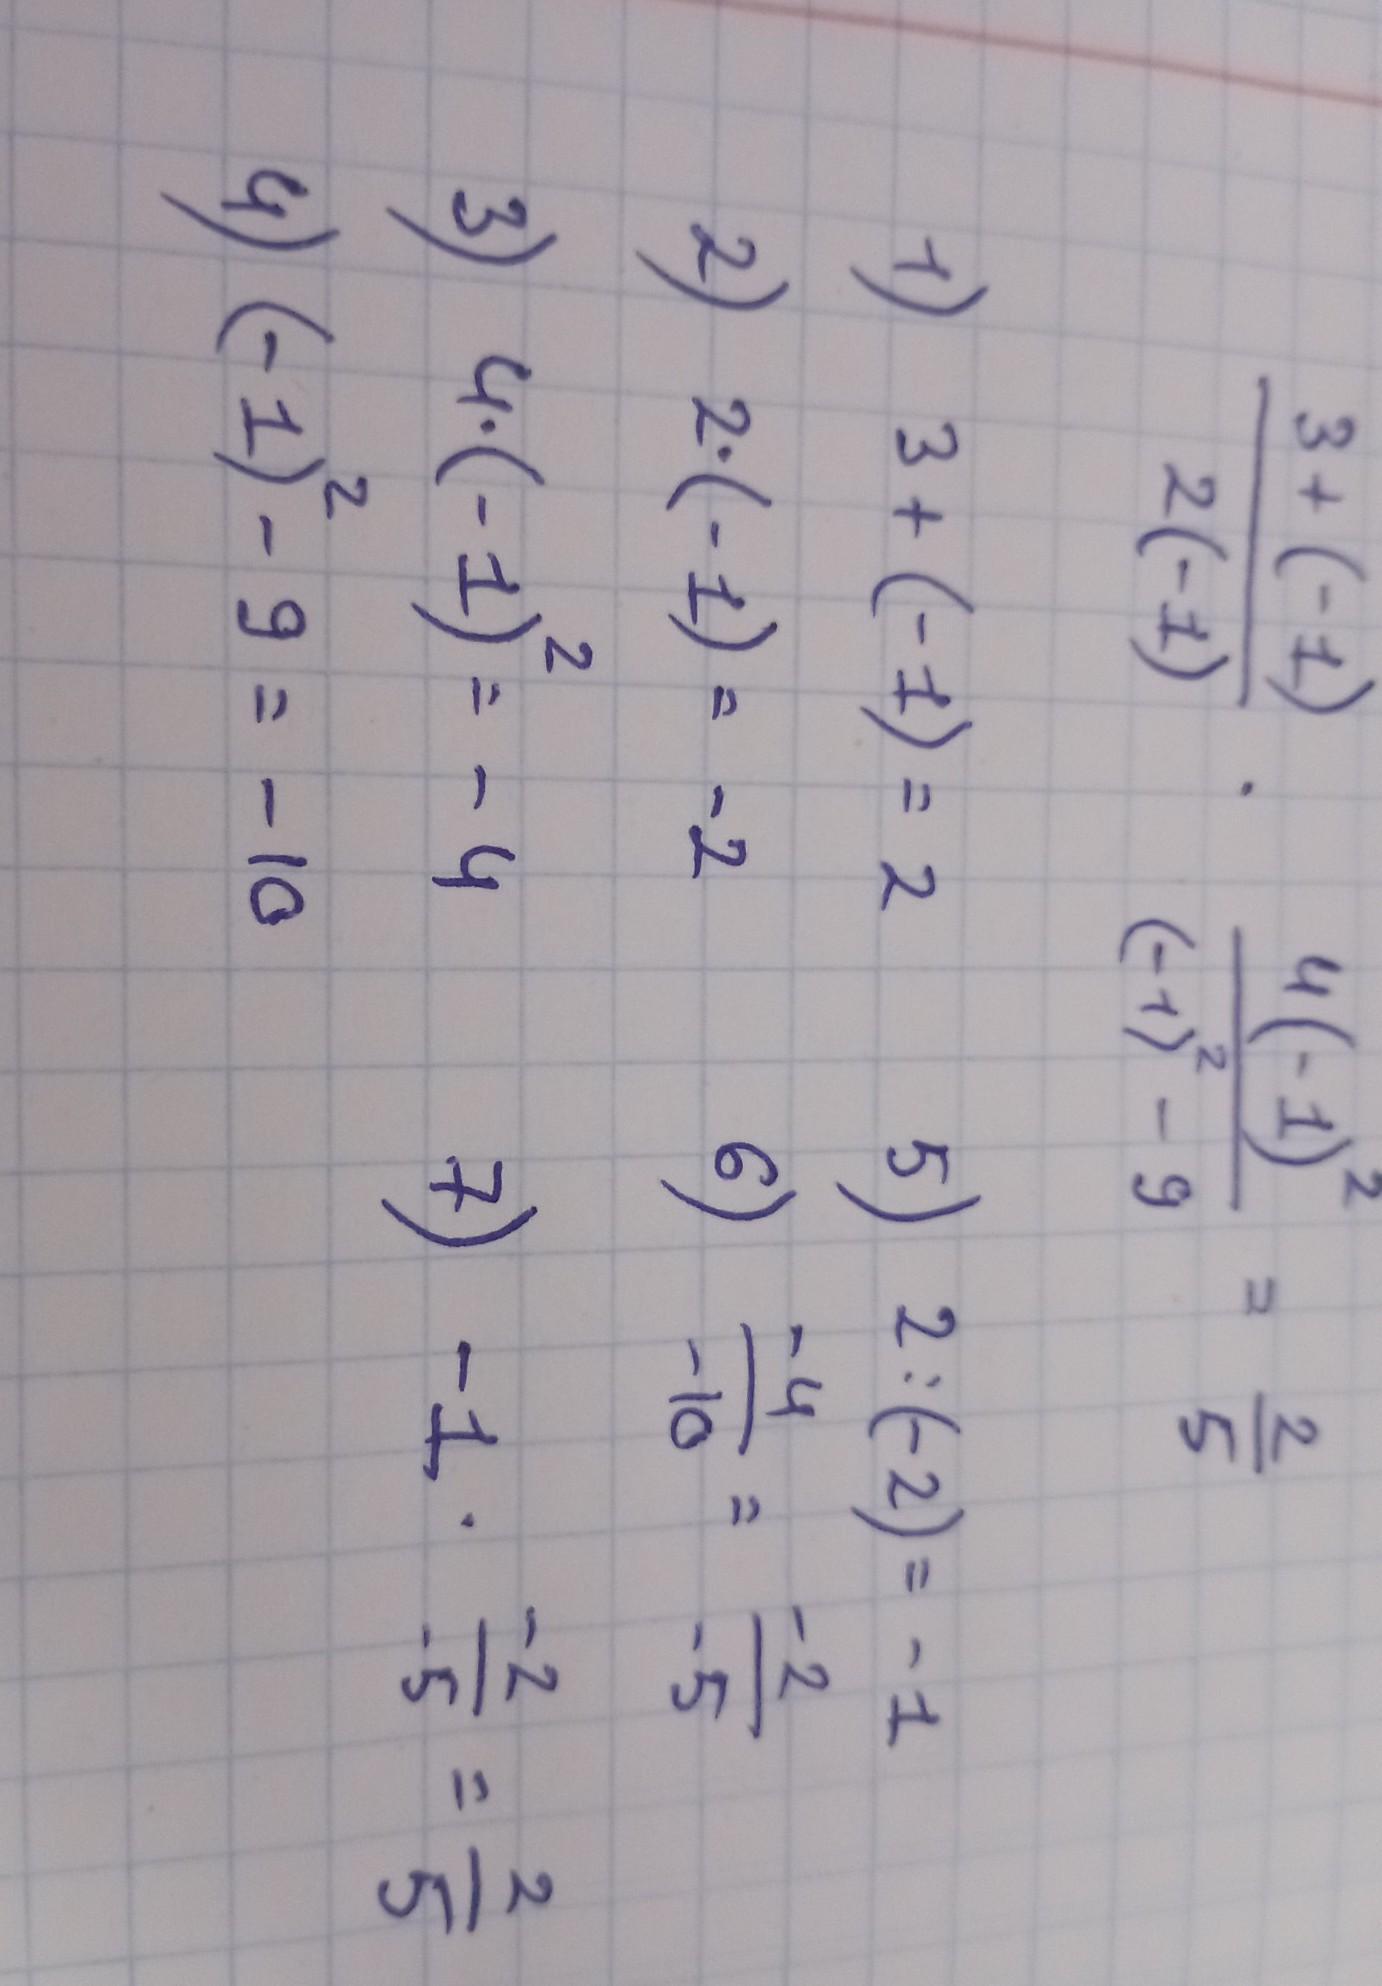 3+(-1)/2(-1) · 4(-1)²/(-1)²-9 = 2/5
1) 3+(-1)=2
2) 2·(-1)= -2
3) 4·(-1)²= -4
4) (-1)²-9= -10
5) 2:(-2)= -1
6) -4/-10 = -2/-5
7) -1 · -2/-5 = 2/5